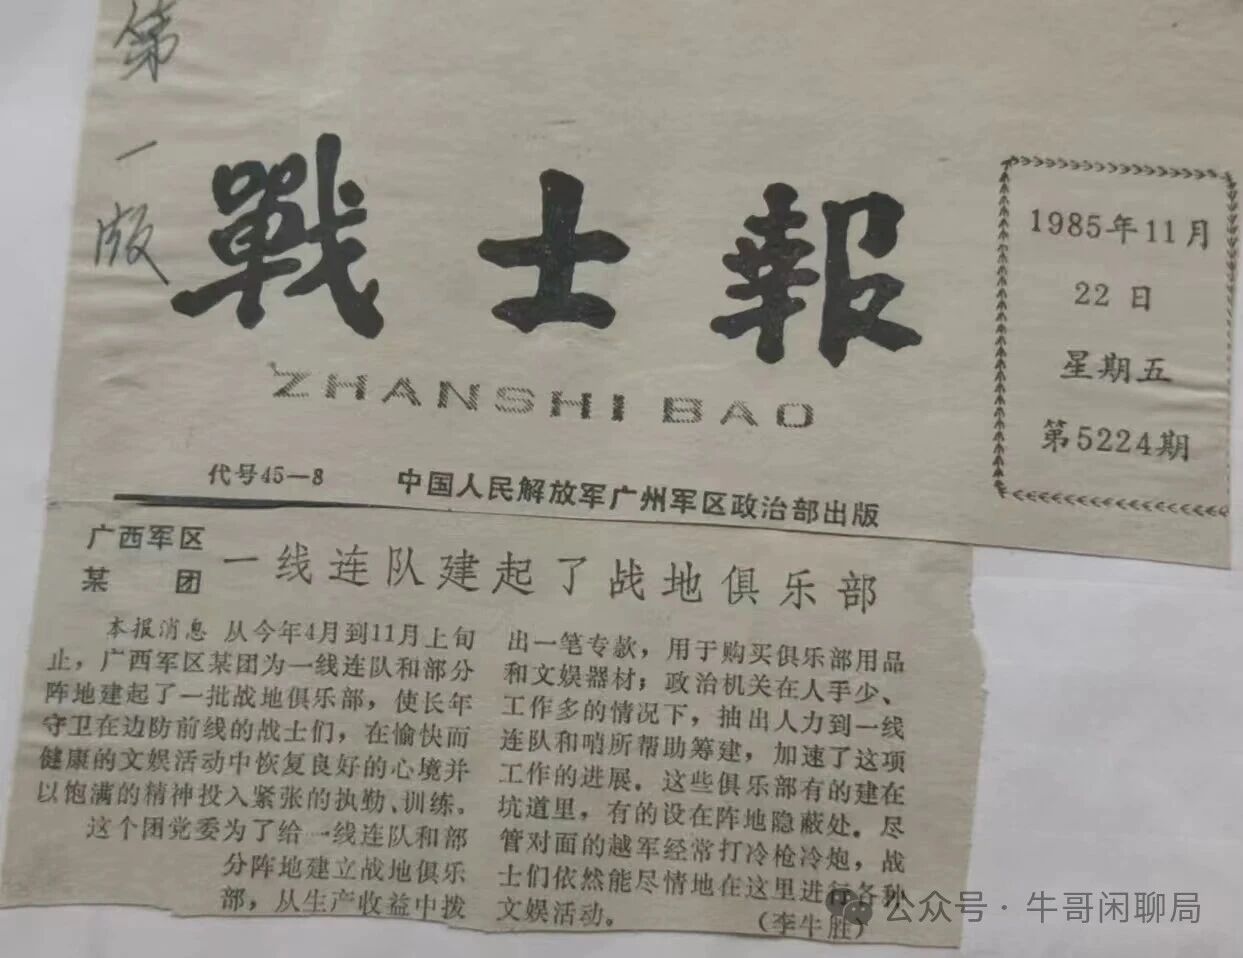 第一版
戰士報
ZHANSHI BAO
1985年11月
22日
星期五
第5224期
代号45—8
中国人民解放军广州军区政治部出版
广西军区
某团
一线连队建起了战地俱乐部
本报消息 从今年4月到11月上旬
止，广西军区某团为一线连队和部分
阵地建起了一批战地俱乐部，使长年
守卫在边防前线的战士们，在愉快而
健康的文娱活动中恢复良好的心境并
以饱满的精神投入紧张的执勤、训练。
这个团党委为了给一线连队和部
分阵地建立战地俱乐
部，从生产收益中拨
出一笔专款，用于购买俱乐部用品
和文娱器材；政治机关在人手少、
工作多的情况下，抽出人力到一线
连队和哨所帮助筹建，加速了这项
工作的进展。这些俱乐部有的建在
坑道里，有的设在阵地隐蔽处。尽
管对面的越军经常打冷枪冷炮，战
士们依然能尽情地在这里进行各种
文娱活动。
（李牛胜）
公众号·牛哥闲聊局